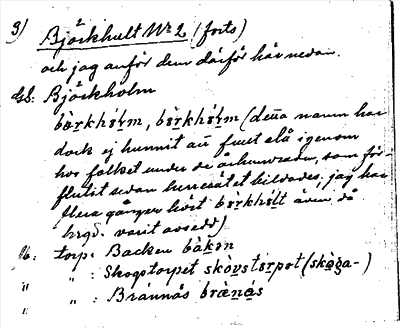 3) Björkhult Nr 2 (forts)
och jag anför dem därför här nedan.
Gd: Björkholm
bærkhólm, bœrkhólm (detta namn har
dock ej hunnit än fullt slå igenom
hos folket under de århundraden, som för-
flutit sedan herresätet bildades; jag har
flera gånger hört bœrkhólt även då
hrgd. varit avsedd)
Ub: torp: Backen bàkən
" " : Skogstorpet skòvstɷrpət (skòga-)
" " : Brännås brænås
"